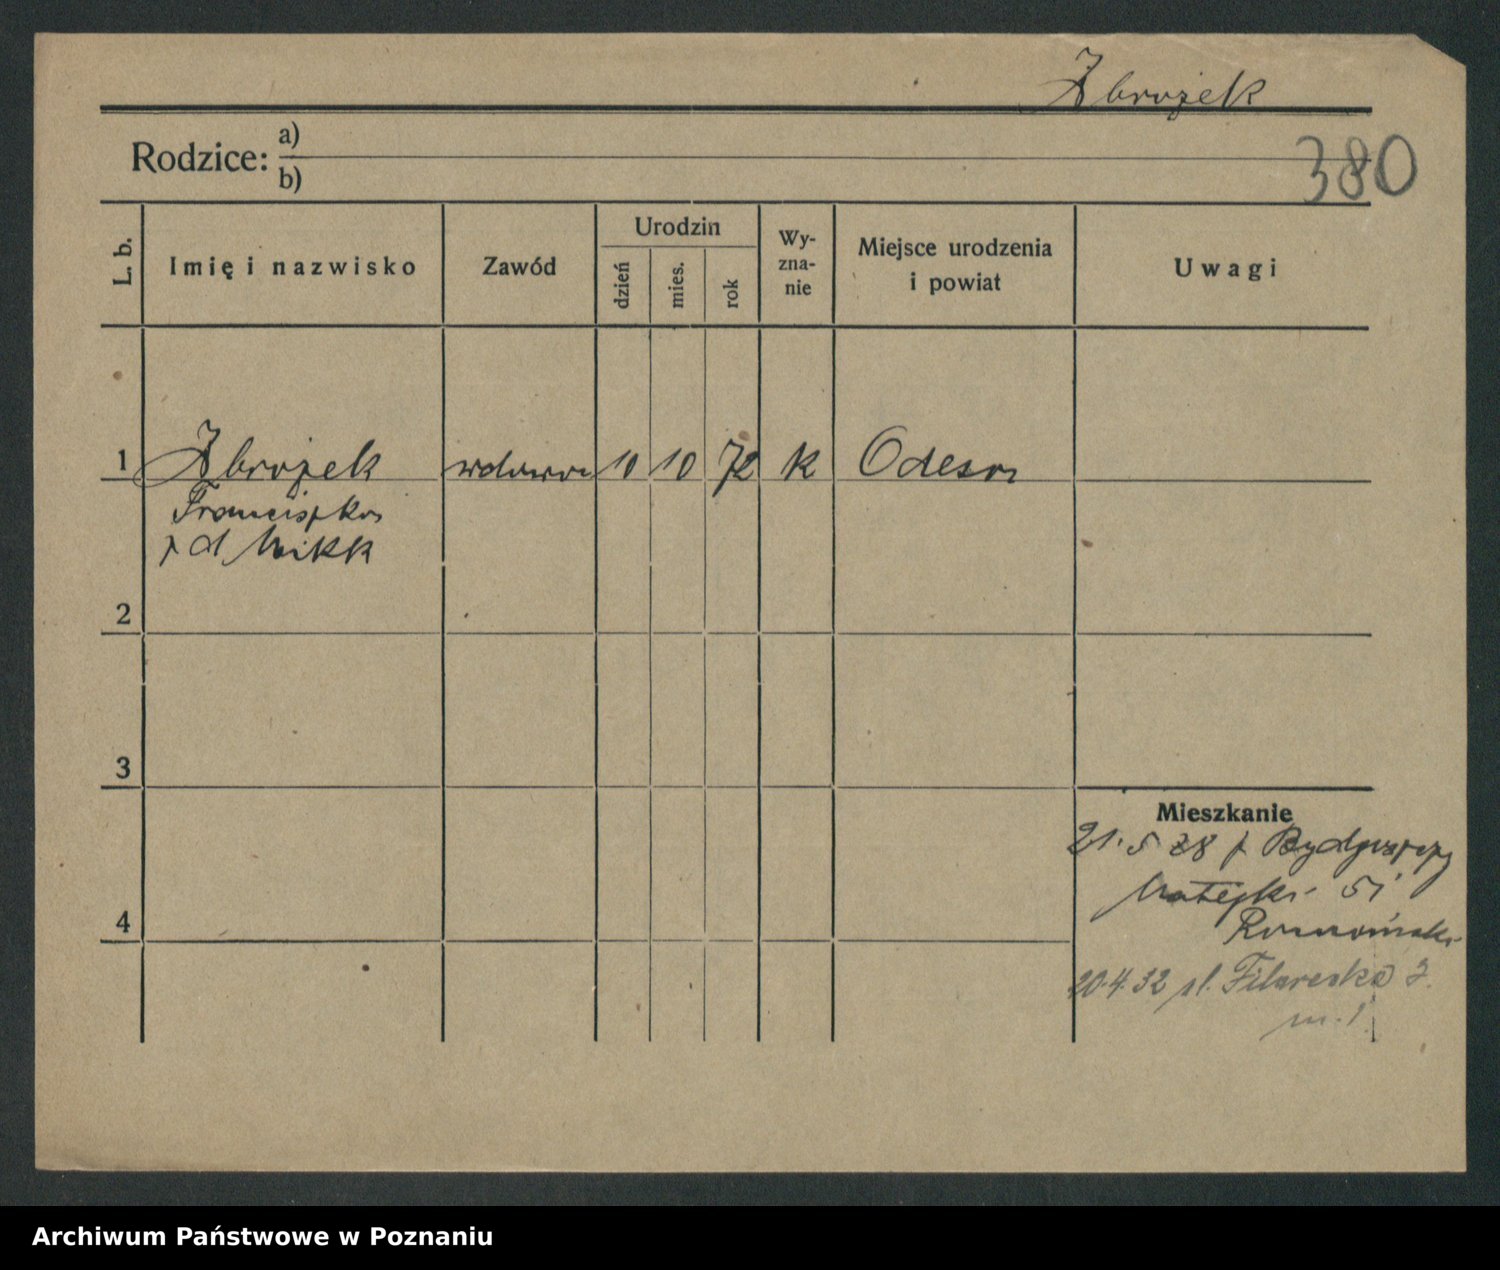 Zbrożek
Rodzice: a)
b)
380
L. b.
Imię i nazwisko
Zawód
Urodzin
dzień
mies.
rok
Wy-
zna-
nie
Miejsce urodzenia
i powiat
Uwagi
1 Zbrożek wdowa 10 10 72 k Odesa
Franciszka
z d Wikk
2
3
4
Mieszkanie
21. 5 28 z Bydgoszczy
Matejki 51
20.4.32 ul. Filarecka 3.
m. 1
Archiwum Państwowe w Poznaniu